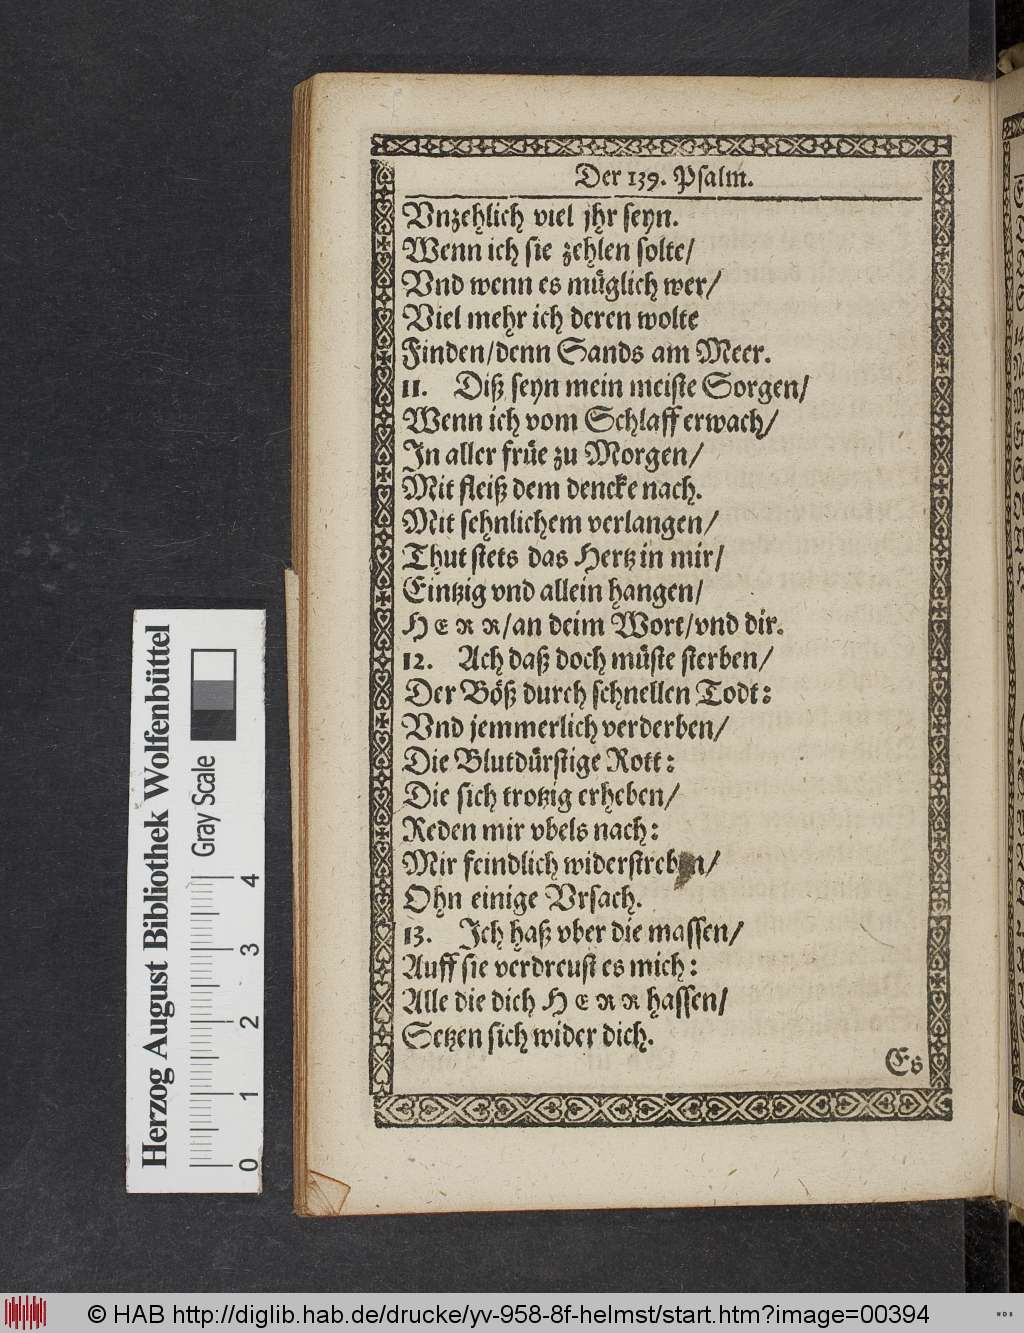 Der 139. Psalm.
Vnzehlich viel jhr seyn.
Wenn ich sie zehlen solte/
Vnd wenn es müglich wer/
Viel mehr ich deren wolte
Finden/denn Sands am Meer.
11. Diß seyn mein meiste Sorgen/
Wenn ich vom Schlaff erwach/
In aller früe zu Morgen/
Mit fleiß dem dencke nach.
Mit sehnlichem verlangen/
Thut stets das Hertz in mir/
Eintzig vnd allein hangen/
HERR/an deim Wort/vnd dir.
12. Ach daß doch müste sterben/
Der Böß durch schnellen Todt:
Vnd jemmerlich verderben/
Die Blutdürstige Rott:
Die sich trotzig erheben/
Reden mir vbels nach:
Mir feindlich widerstreben/
Ohn einige Vrsach.
13. Ich haß vber die massen/
Auff sie verdreust es mich:
Alle die dich HERR hassen/
Setzen sich wider dich.
Es
Herzog August Bibliothek Wolfenbüttel
Gray Scale
0 1 2 3 4
© HAB http://diglib.hab.de/drucke/yv-958-8f-helmst/start.htm?image=00394